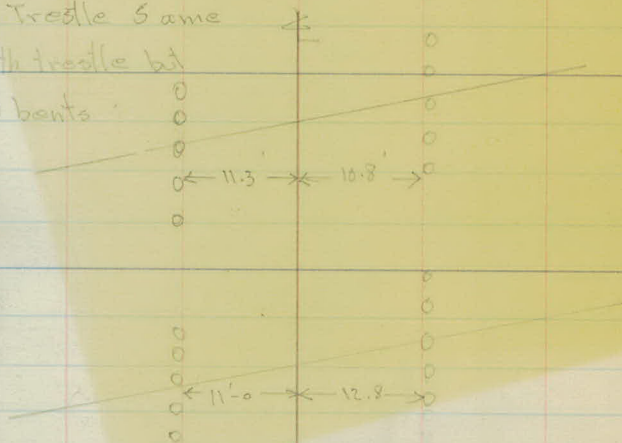 Trestle Same
th trestle but
bents
11.3' 10.8'
11'-0 12.8